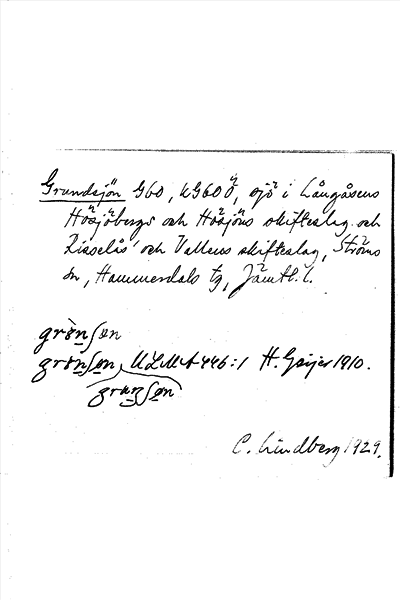 Grundsjön G60, KG60Ö, sjö i Långåsens
Hösjöbergs och Hösjöns skifteslag och
Risselås' och Vallens skifteslag, Ströms
sn, Hammerdals tg, Jämtl. l.
grᴓ̀nʃən
grònʃən, ULMA 446:1 H. Geijer 1910.
grunʃən
C. Lindberg 1929.